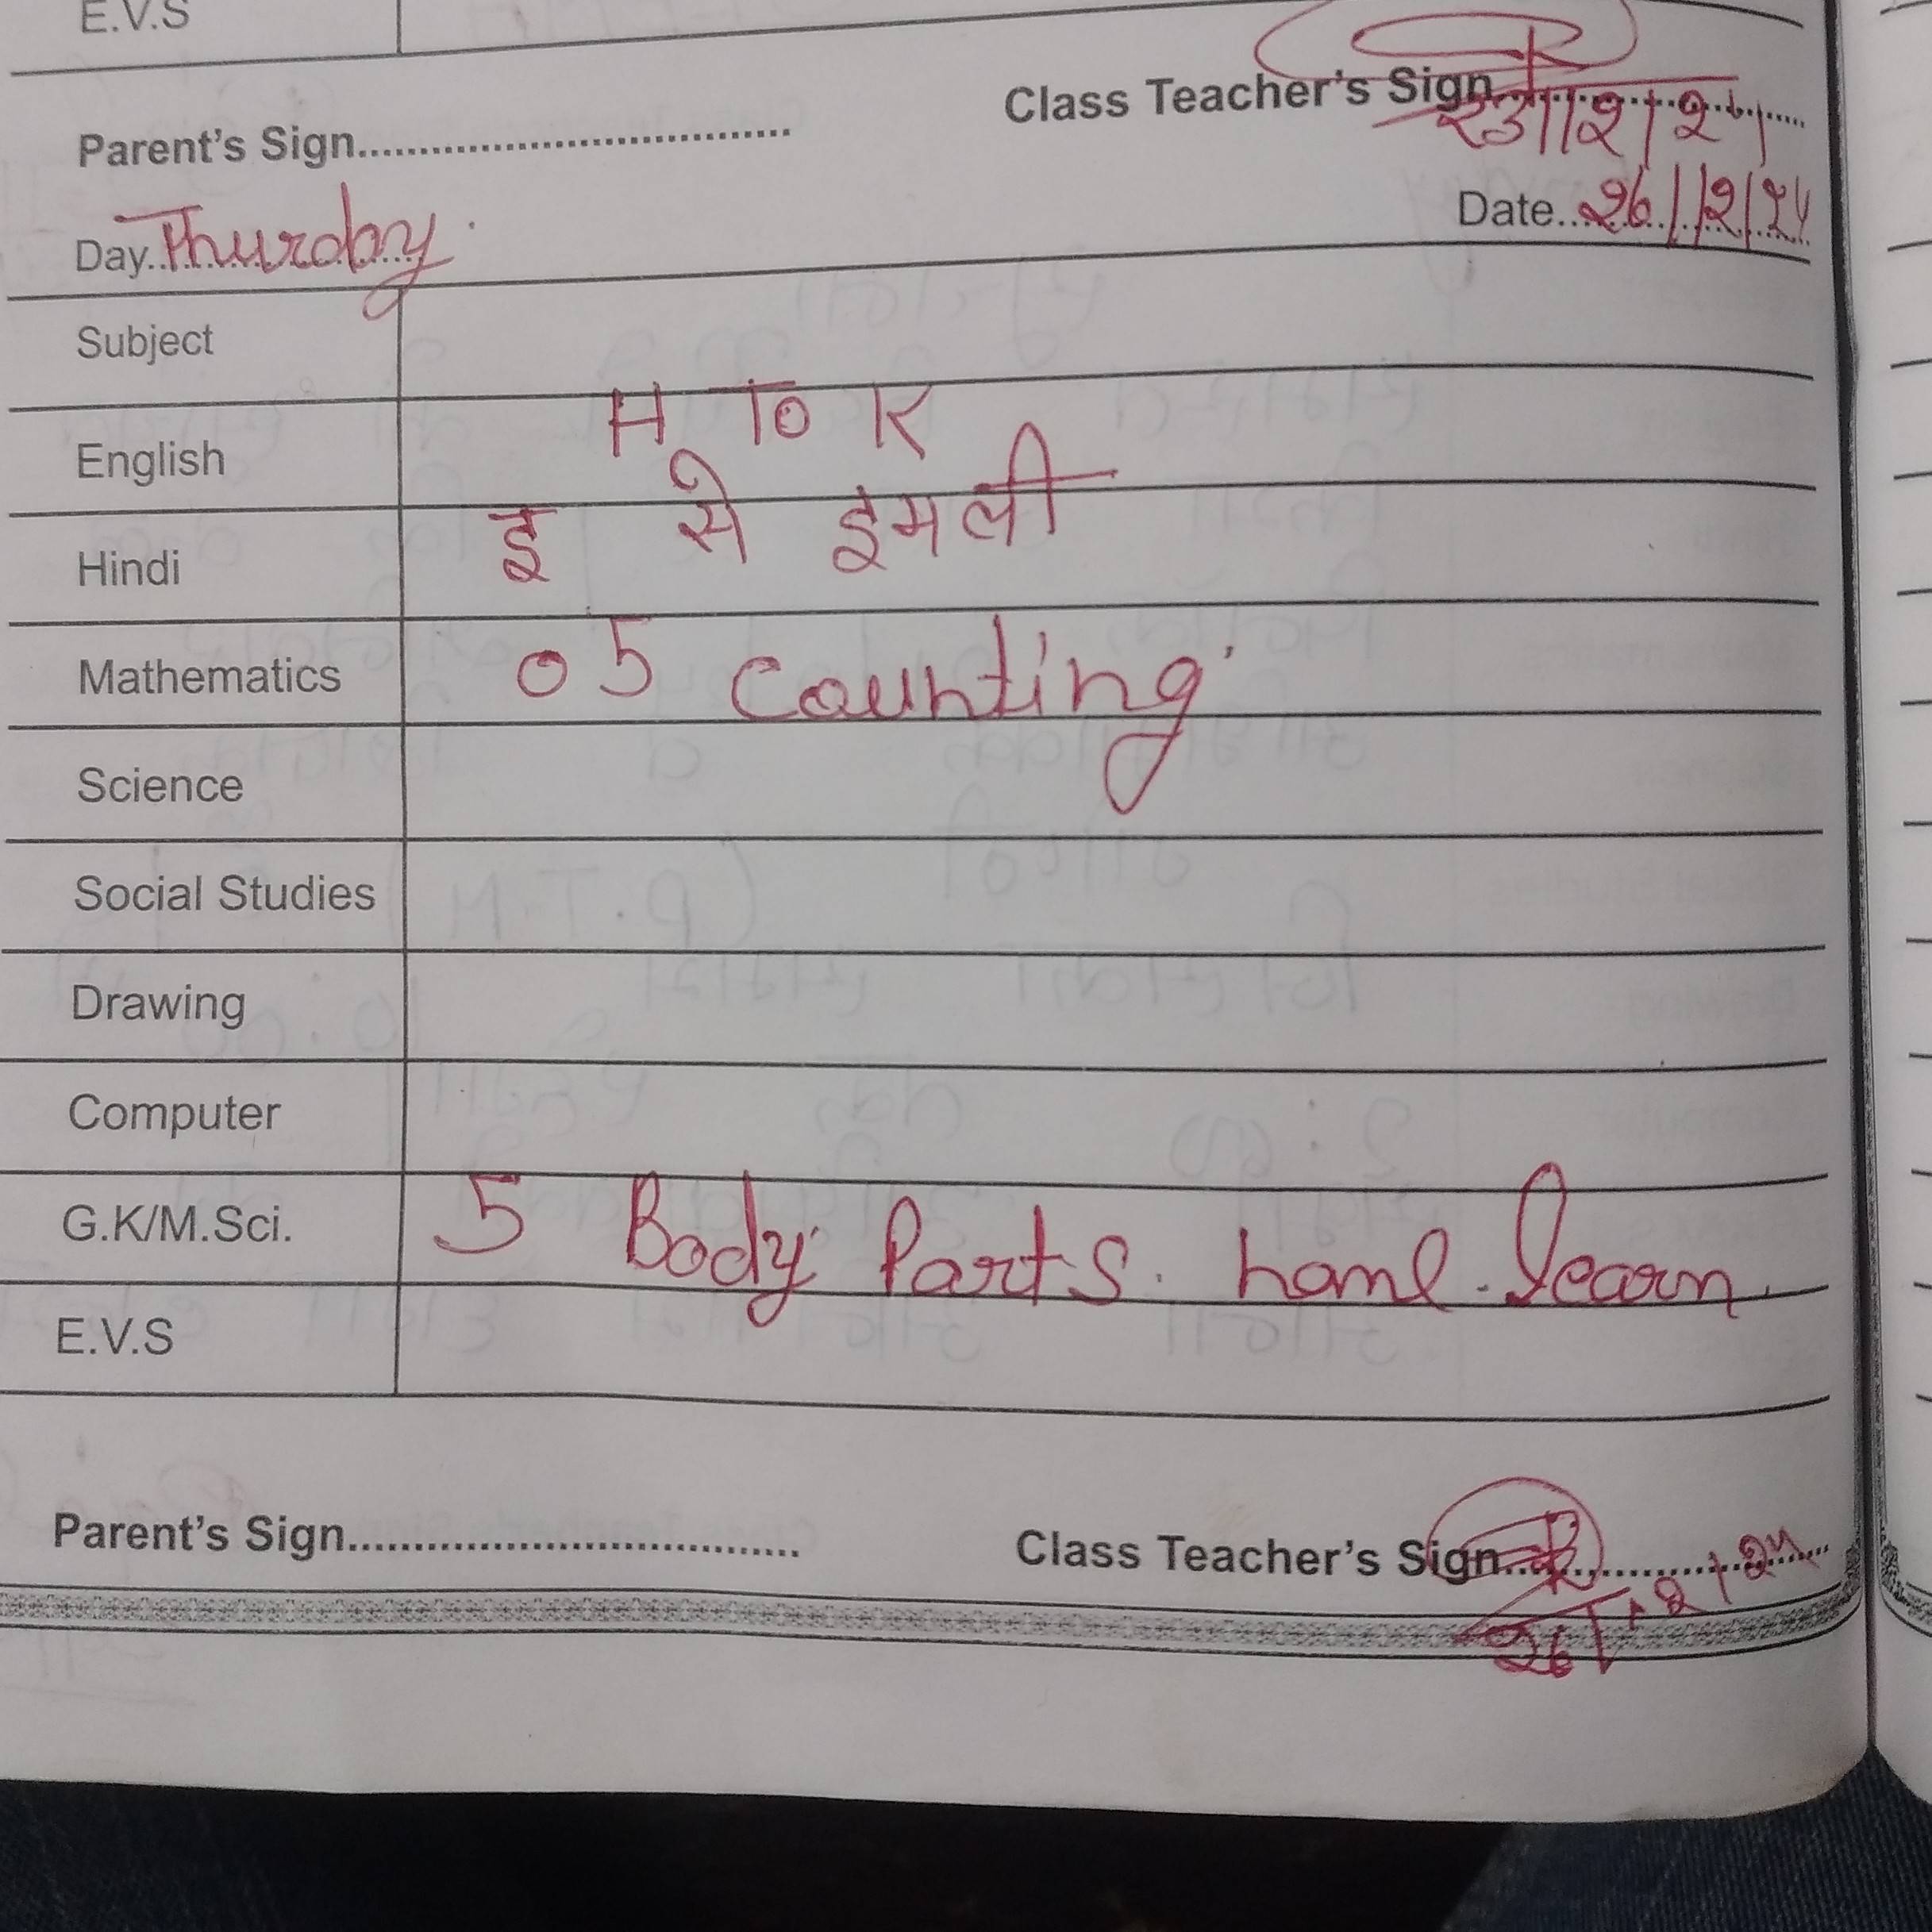 E.V.S
Class Teacher's Sign..............................
Parent's Sign....................................
Date...26/12/24
Day..Thurday
Subject
English H To K
Hindi इ से इमली
Mathematics 05 Counting
Science
Social Studies
Drawing
Computer
G.K/M.Sci. 5 Body Parts. home. learn
E.V.S
Parent's Sign....................................
Class Teacher's Sign..............................
26/12/24